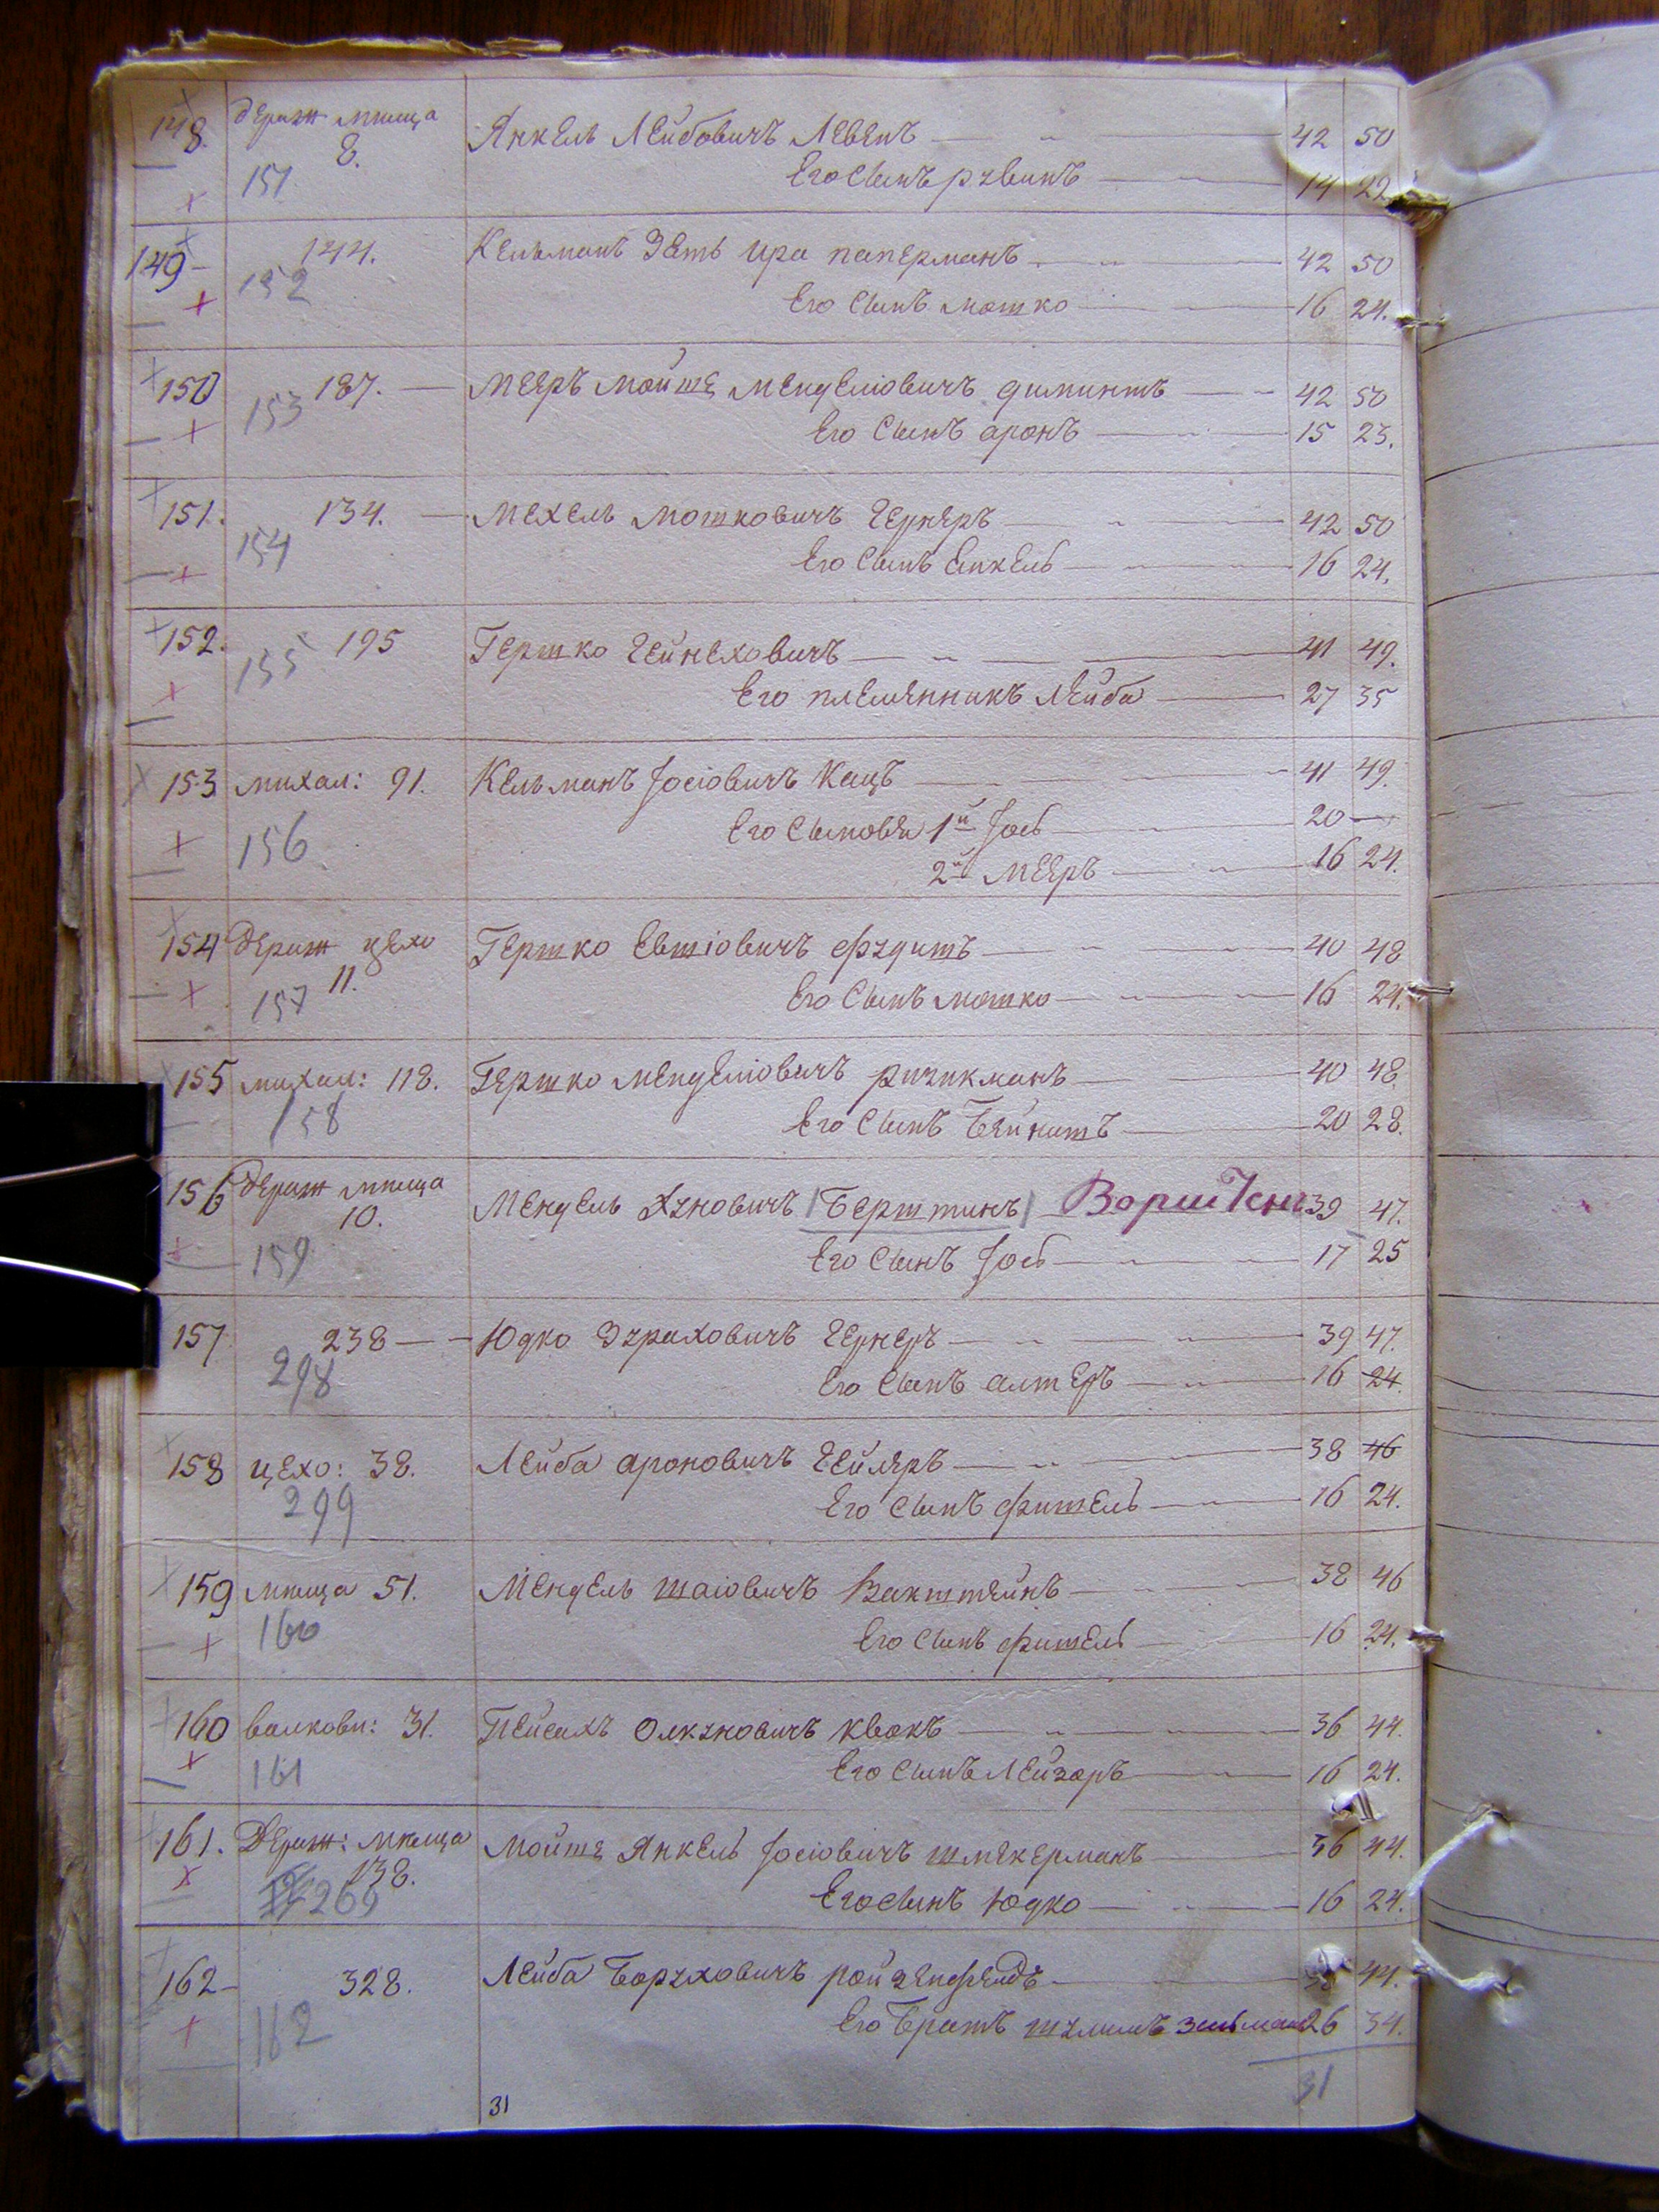 148. дераж мпица Янкель Лейбовичъ Левенъ 42 50
8.
151. Его сынъ рувинъ 14 22
149 144. Кельманъ Зять Ира паперманъ 42 50
152 Его сынъ мошко 16 24.
150 187. Мееръ Мойше Менделіовичъ диминтъ 42 50
153 Его Сынъ аронъ 15 23.
151. 134. Мехель Мошковичъ Гернеръ 42 50
154 Его Сынъ Енкель 16 24.
152. 195 Гершко Гейнеховичъ 41 49.
155 Его племянникъ Лейба 27 35
153 михал: 91. Кельманъ Іосіовичъ Кацъ 41 49.
156 Его Сыновья 1й Іось 20 —
2й Мееръ 16 24.
154 Дераж цехо Гершко Евшіовичъ 40 48
11.
157 Его Сынъ мошко 16 24.
155 михал: 118. Гершко Менделіовичъ 40 48.
158 Его Сынъ Бейнишъ 20 28.
156 дераж мпица Мендель Хуновичъ |Берштинъ| 39 47.
10.
159 Его Сынъ Іось 17 25
157 238 Юдко Зураховичъ Гернеръ 39 47.
298 Его Сынъ алтеръ 16 24.
158 цехо: 38. Лейба ароновичъ Гейлеръ 38 46
299 Его Сынъ фишель 16 24.
159 мпица 51. Мендель шаіовичъ Вакштейнъ 38 46
160 Его Сынъ фишель 16 24.
160 волкови: 31. Пейсахъ Олкуновичъ квокъ 36 44.
161 Его сынъ Лейзоръ 16 24.
161. Дераж: мпица Мойше Янкель Іосіовичъ шмекерманъ 36 44.
138.
269 Его сынъ Юдко 16 24.
162 328. Лейба Боруховичъ ройзенфельдъ 44.
162 Его Братъ шулимъ зельман 26 34.
31
31